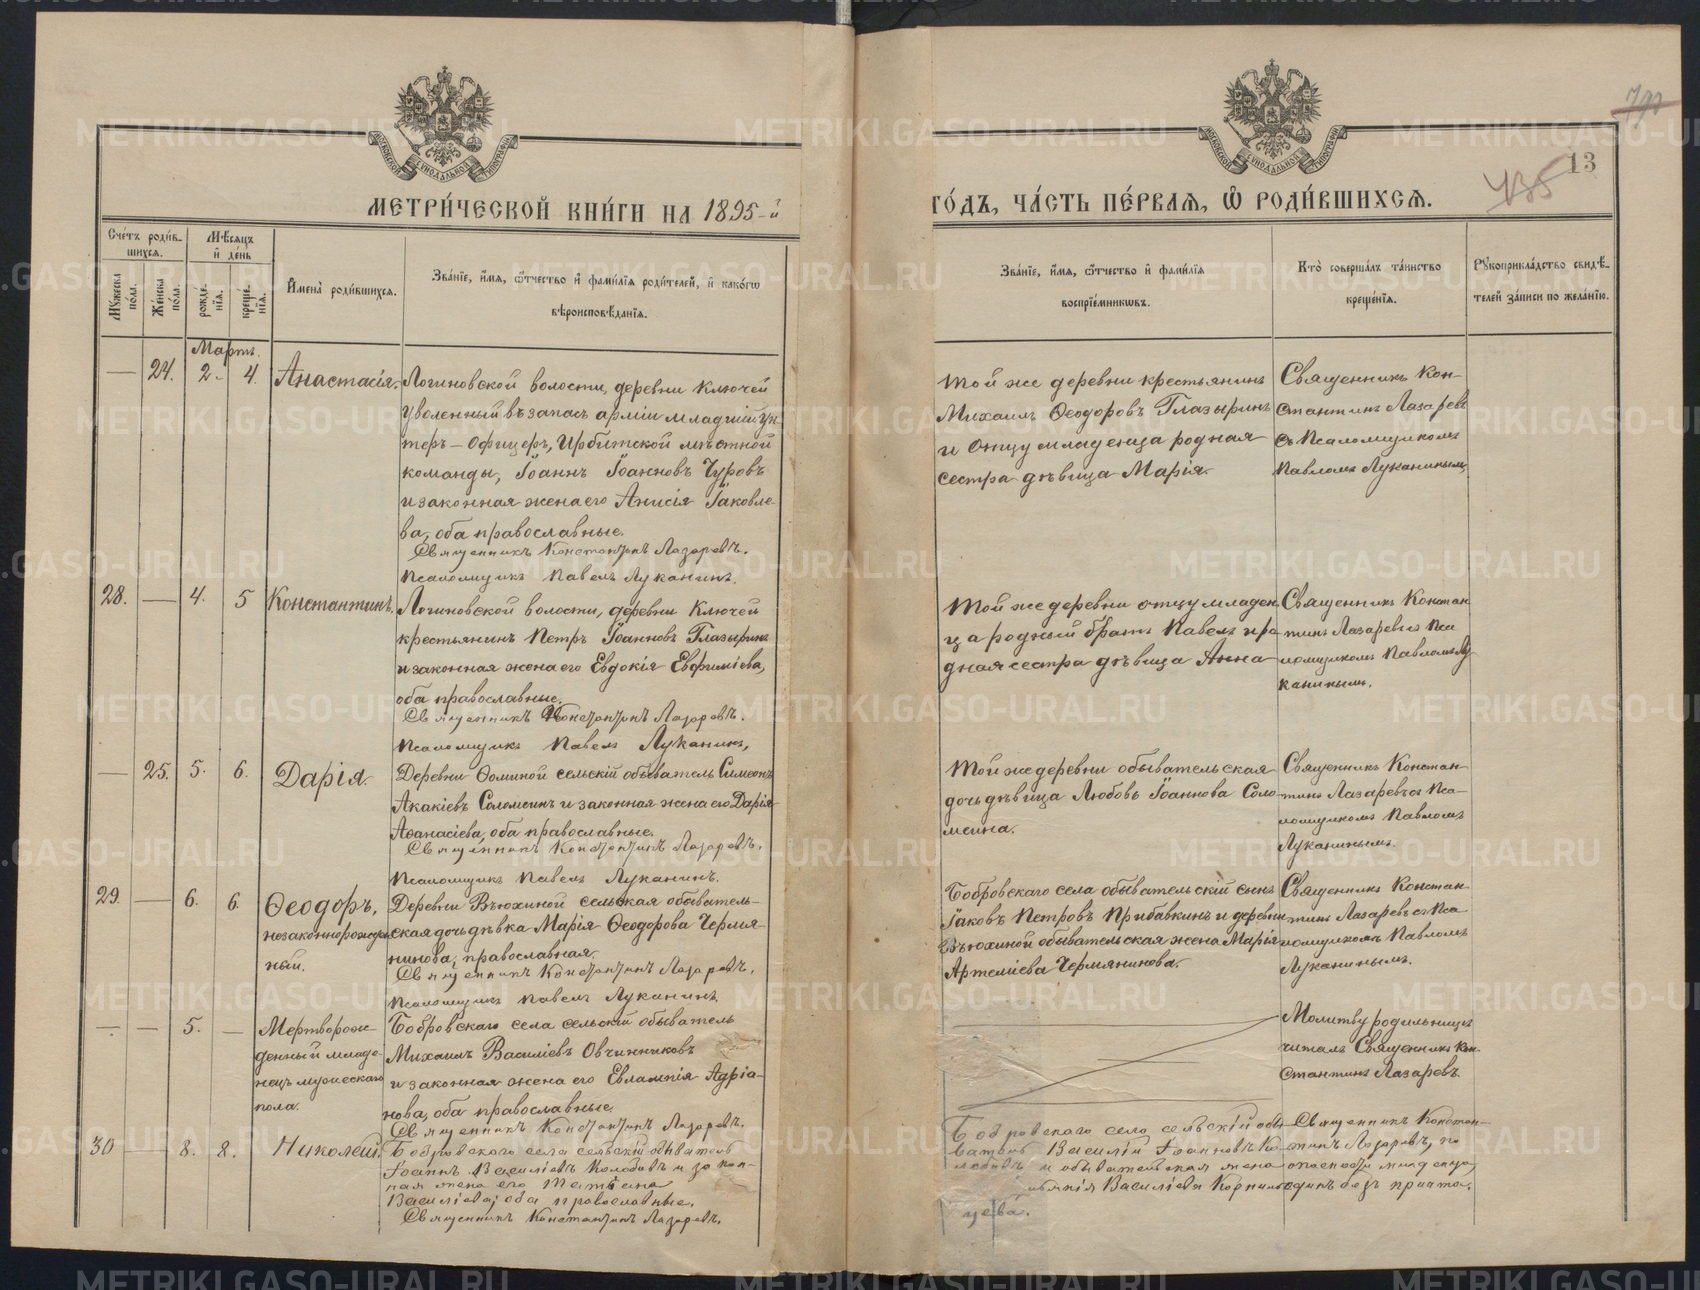 МЕТРИ́ЧЕСКОЙ КНИ́ГИ НА 1895-й
ГО́ДЪ, ЧА́СТЬ ПЕ́РВАЯ, Ѡ РОДИ́ВШИХСЯ.
13
435
Сче́тъ роди́в-
шихся.
Мѣсяцъ
и де́нь
Мꙋ́жеска
по́ла.
Же́нска
по́ла.
рожде́-
нїя.
креще́-
нїя.
Имена̀ роди́вшихся.
Зва́нїе, и́мя, ѻ҆́тчество и҆ фами́лїя роди́телей, и҆ како́гѡ
вѣроисповѣ́данїя.
Зва́нїе, и́мя, ѻ҆́тчество и҆ фами́лїя
воспрїе́мникѡвъ.
Кто̀ соверша́лъ та́инство
креще́нїя.
Рꙋкоприкла́дство свидѣ́-
телей за́писи по жела́нїю.
Мартъ.
— 24. 2. 4. Анастасія.
Логиновской волости, деревни Ключей
уволенный въ запасъ арміи младшій ун-
теръ-Офицеръ, Ирбитской мѣстной
команды, Іоаннъ Іоанновъ Чуровъ
и законная жена его Анисія Іаковле-
ва, оба православные.
Священникъ Константинъ Лазаревъ.
Псаломщикъ Павелъ Луканинъ.
Той же деревни крестьянинъ
Михаилъ Ѳеодоровъ Глазыринъ
и отцу младенца родная
сестра дѣвица Марія.
Священникъ Кон-
стантинъ Лазаревъ
съ Псаломщикомъ
Павломъ Луканинымъ
28. — 4. 5 Константинъ.
Логиновской волости, деревни Ключей
крестьянинъ Петръ Іоанновъ Глазыринъ
и законная жена его Евдокія Евфиміева,
оба православные.
Священникъ Константинъ Лазаревъ.
Псаломщикъ Павелъ Луканинъ,
Той же деревни отцу младен
ца родный братъ Павелъ и ро
дная сестра дѣвица Анна
Священникъ Констан
тинъ Лазаревъ съ Пса
ломщикомъ Павломъ Лу-
канинымъ.
— 25. 5. 6. Дарія.
Деревни Ѳоминой сельскій обыватель Симеонъ
Акакіевъ Соломеинъ и законная жена его Дарія
Аѳанасіева, оба православные.
Священникъ Константинъ Лазаревъ.
Псаломщикъ Павелъ Луканинъ.
Той же деревни обывательская
дочь дѣвица Любовь Іоаннова Соло-
меина.
Священникъ Констан-
тинъ Лазаревъ съ Пса-
ломщикомъ Павломъ
Луканинымъ.
29. — 6. 6. Ѳеодоръ,
незаконнорожден
ный.
Деревни Вьюхиной сельская обыватель-
ская дочь дѣвка Марія Ѳеодорова Чермя-
нинова, православная.
Священникъ Константинъ Лазаревъ.
Псаломщикъ Павелъ Луканинъ
Бобровскаго села обывательскій сынъ
Іаковъ Петровъ Прибавкинъ и деревни
Вьюхиной обывательская жена Марія
Артеміева Чермянинова.
Священникъ Констан-
тинъ Лазаревъ съ Пса
ломщикомъ Павломъ
Луканинымъ.
— — 5. — Мертворож-
денный младе-
нецъ мужескаго
пола.
Бобровскаго села сельскій обыватель
Михаилъ Василіевъ Овчинниковъ
и законная жена его Евлампія Адріа-
нова, оба православные.
Священникъ Константинъ Лазаревъ.
Молитву родильницѣ
читалъ Священникъ Кон-
стантинъ Лазаревъ.
30 — 8. 8. Николай.
Бобровскаго села сельскій обыватель
Іоаннъ Василіевъ Колобовъ и закон-
ная жена его Татіана
Василіева, оба православные.
Священникъ Константинъ Лазаревъ.
Бобровскаго села сельскій обы-
ватель Василій Іоанновъ Ко-
лобовъ и обывательская жена
Василіева Корнило
цева.
Священникъ Констан-
тинъ Лазаревъ, по
опасности младенца,
одинъ безъ причта.